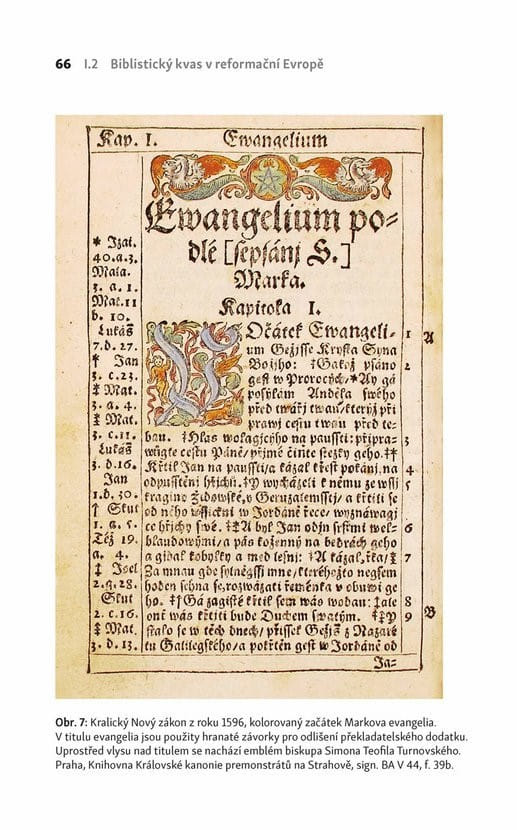 66 I.2 Biblistický kvas v reformační Evropě
Kap. I. Ewangelium
Ewangelium po=
dlé [sepsánj S.]
Marka.
Kapitola I.
* Izai.
40.a.3.
Mala.
3. a. 1.
Mat.11
b. 10.
Lukáš
7.d.27.
* Jan
3. c.23.
‡ Mat.
3. a. 4.
‡ Mat.
3. c.11.
Lukáš
3.d.16.
Jan
1.d.30.
† Skut
1. a. 5.
Též 19.
a. 4.
‡ Joel
2.g.28.
Skut
2.c.16.
‡ Mat.
3.d.13.
POčátek Ewangeli- 1 A
um Gežisse Krysta Syna
Božjho: ‡Gakož psáno 2
gest w Prorocých/*Ay gá
posýlám Anděla swého
před twářj twau/kterýž při
prawj cestu twau před te-
bau. ‡Hlas wolagjcýho na paussti: připra- 3
wůgte cestu Páně/přjmé čiňte stezky geho.‡†
Křtil Jan na paussti/a kázal křest pokánj/na 4
odpusstěnj hřjchů.‡Y wycházeli k němu ze wssj 5
kraginy Židowské/y Geruzalemsstj/a křtili se
od něho wssickni w Jordáně řece/wyznáwagj
ce hřjchy swé. ‡‡A byl Jan odjn srstmi wel- 6
blaudowými/a pás koženný na bedrách geho
a gjdal kobylky a med lesnj: ‡A kázal/řka/‡ 7
Za mnau gde sylněgssj mne/kteréhožto negsem
hoden sehna se/rozwázati řeménka v obuwi ge
ho. ‡†Gá zagisté křtil sem wás wodau: ‡ale 8
onť wás křtiti bude Duchem swatým. ‡‡Y 9 B
stalo se w těch dnech/přissel Gežjš z Nazaré
tu Galilegského/a pokřtěn gest w Jordáně od
Ja=
Obr. 7: Kralický Nový zákon z roku 1596, kolorovaný začátek Markova evangelia.
V titulu evangelia jsou použity hranaté závorky pro odlišení překladatelského dodatku.
Uprostřed vlysu nad titulem se nachází emblém biskupa Simona Teofila Turnovského.
Praha, Knihovna Královské kanonie premonstrátů na Strahově, sign. BA V 44, f. 39b.